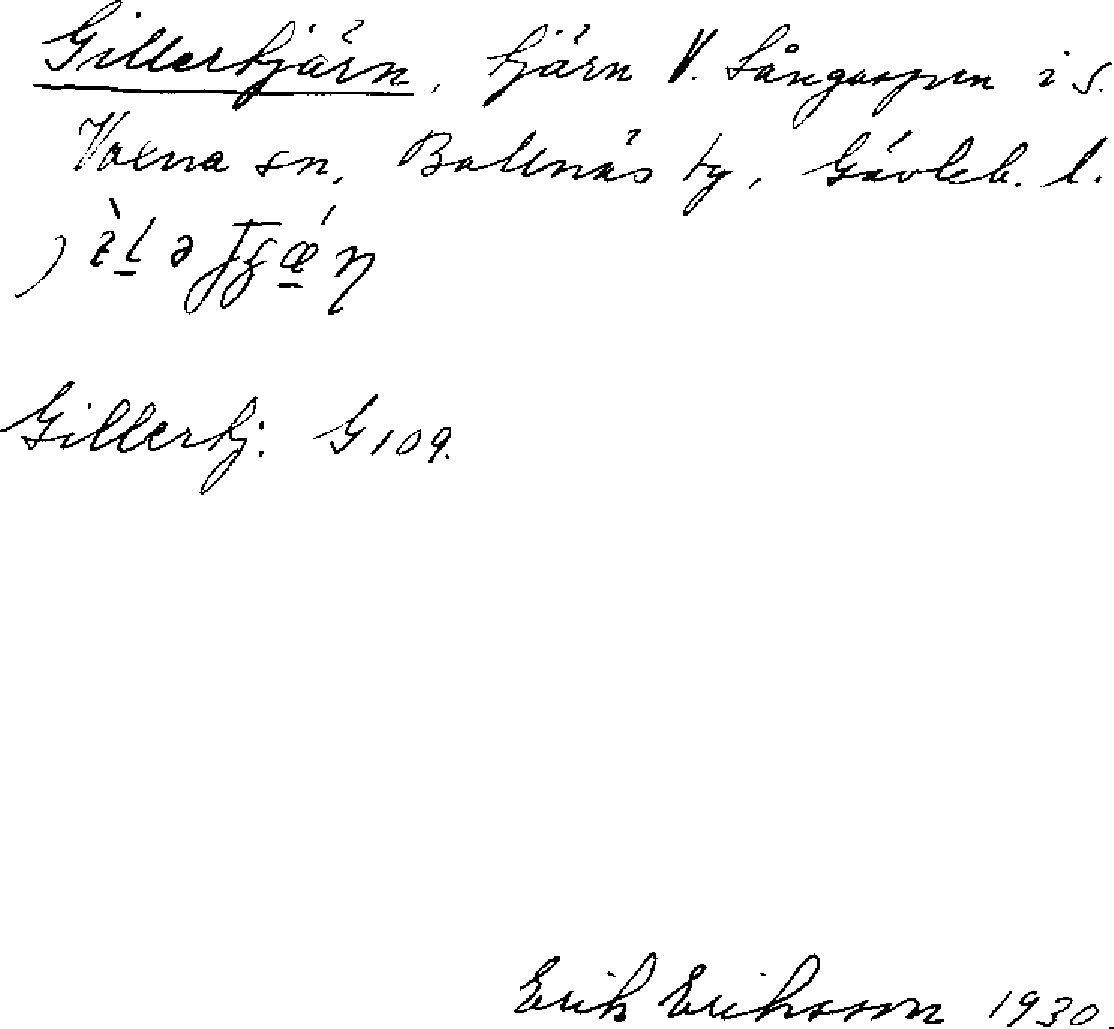 Gillertjärn, tjärn V. Långaspen i S.
Voxna sn, Bollnäs tg, Gävleb. l.
Gillertj. G 109.
Erik Eriksson 1930.